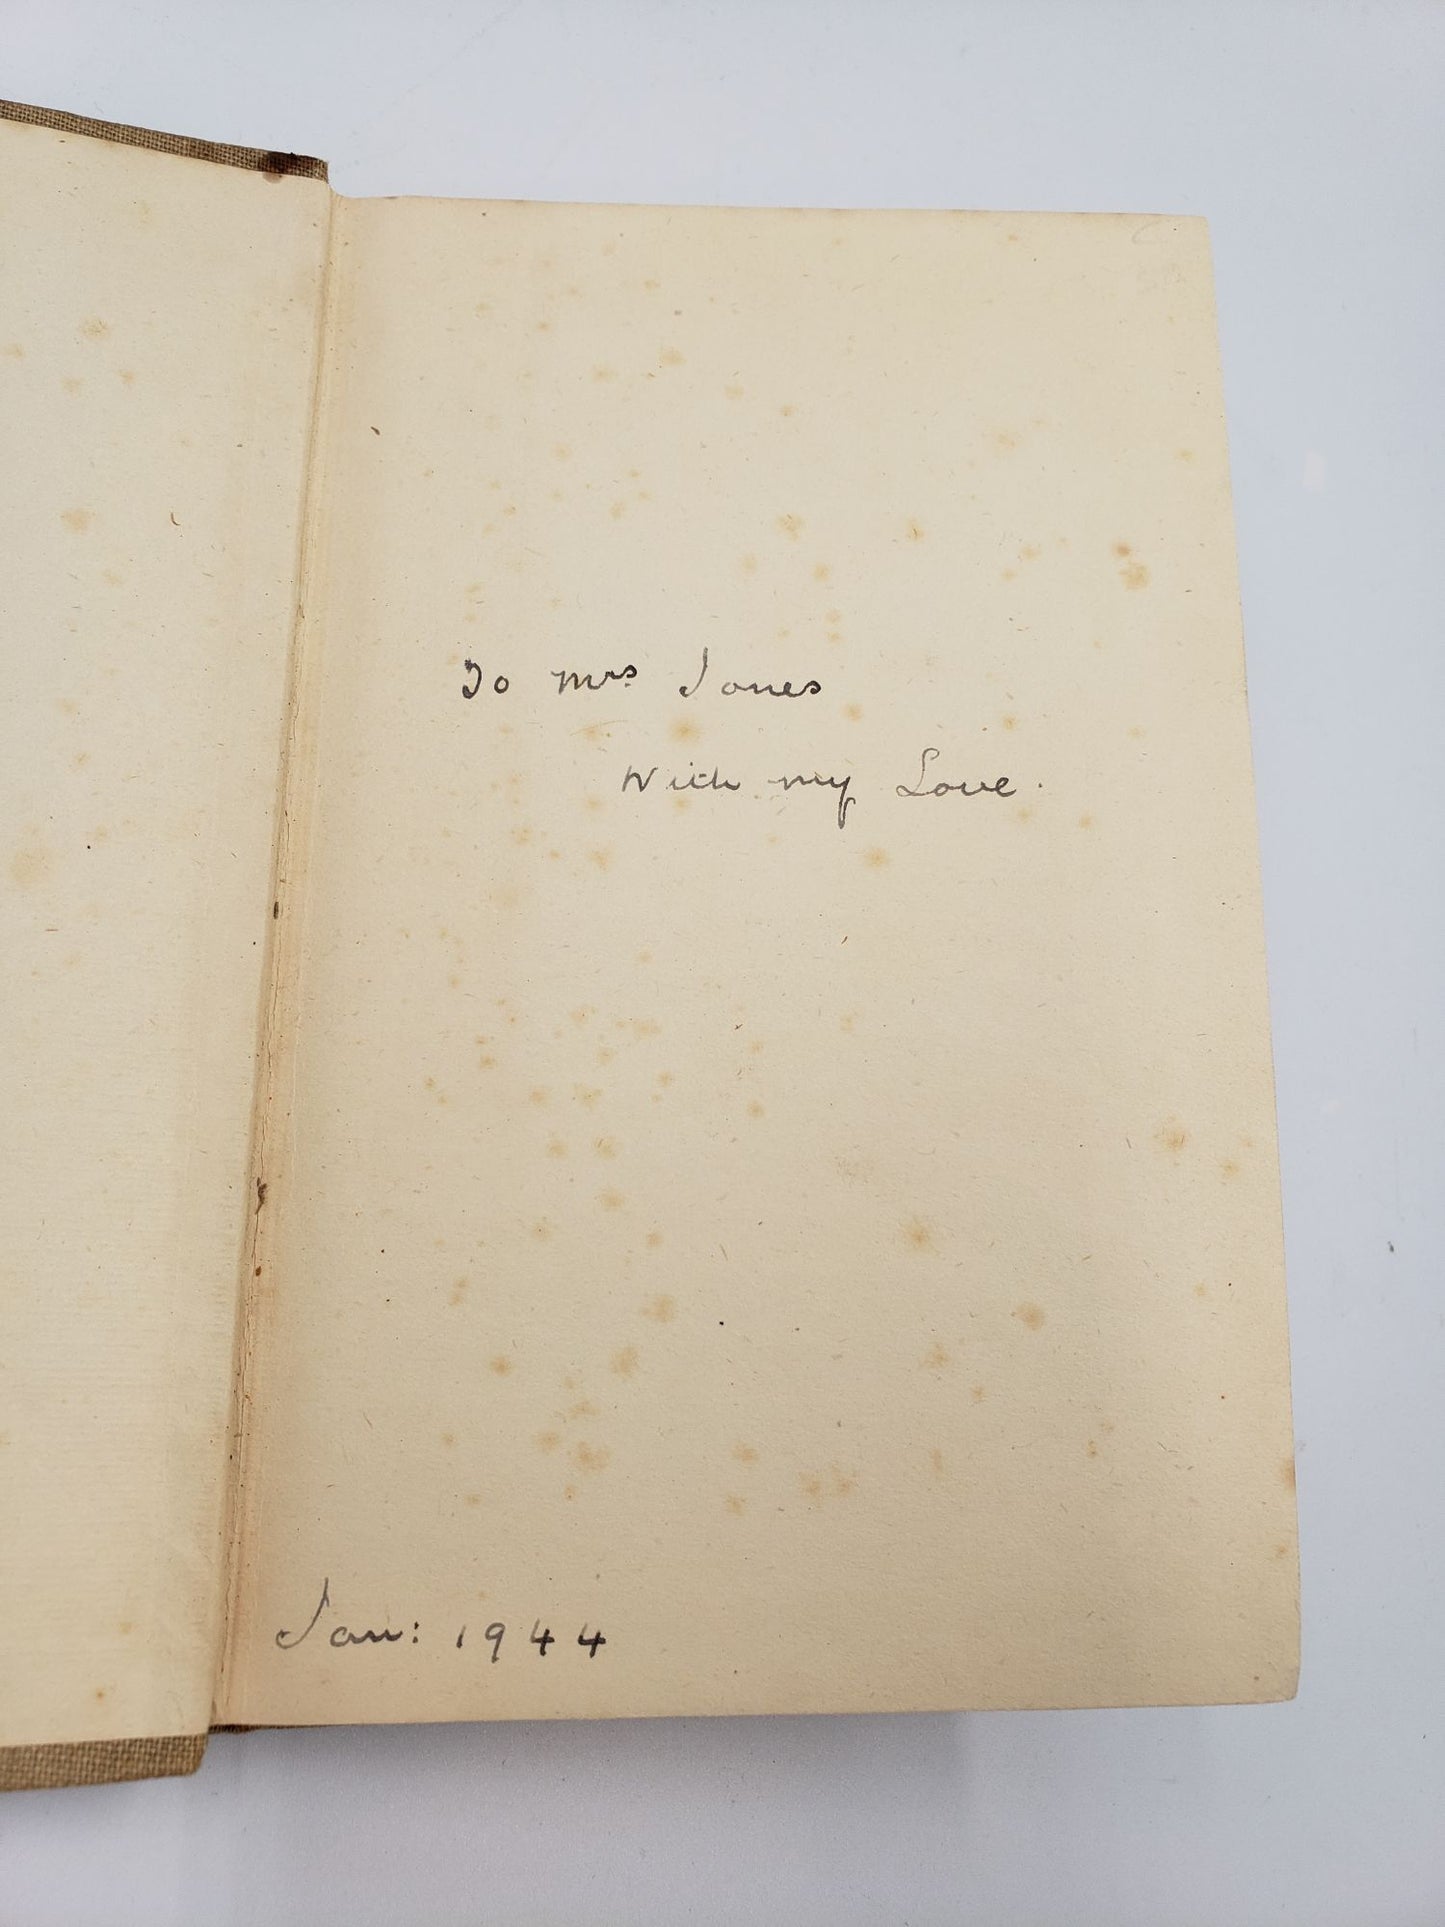 To Mrs. Jones
With my Love.
Jan: 1944